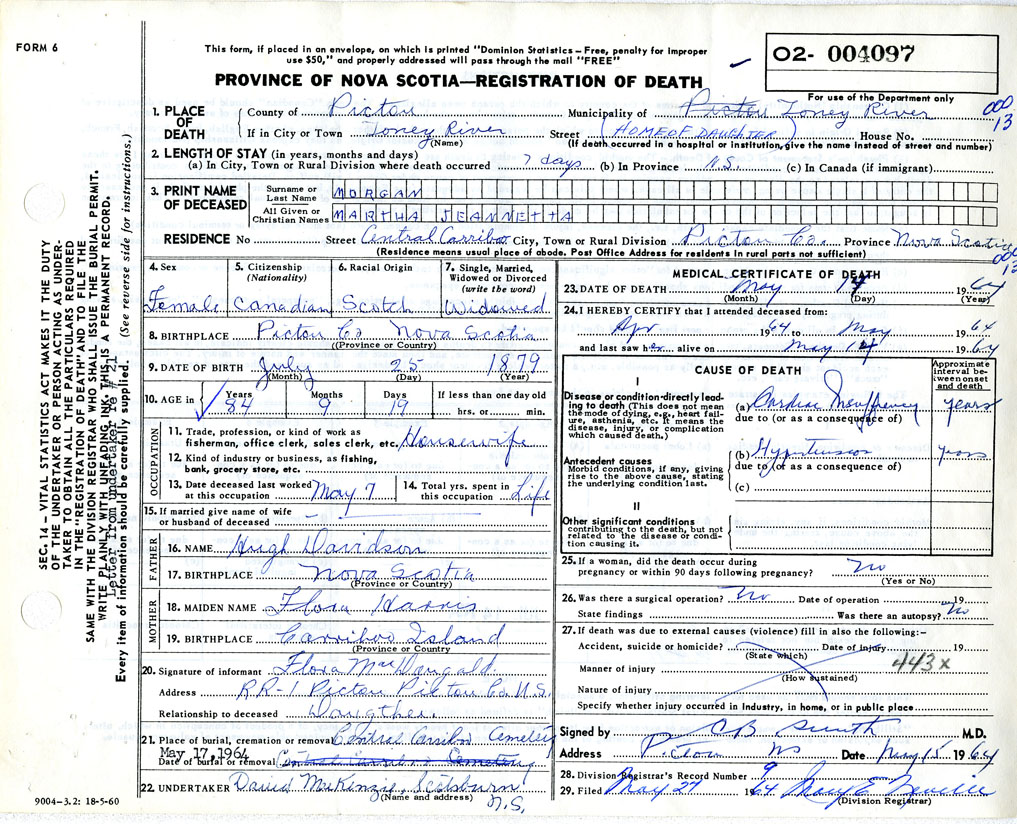 FORM 6
This form, if placed in an envelope, on which is printed "Dominion Statistics – Free, penalty for improper
use $50," and properly addressed will pass through the mail "FREE"
PROVINCE OF NOVA SCOTIA—REGISTRATION OF DEATH
02- 004097
For use of the Department only
000
13
1. PLACE OF DEATH
County of Pictou Municipality of Pictou Toney River
If in City or Town Toney River Street (HOME OF DAUGHTER) House No.
(Name) (If death occurred in a hospital or institution, give the name instead of street and number)
2. LENGTH OF STAY (in years, months and days)
(a) In City, Town or Rural Division where death occurred 7 days (b) In Province N.S. (c) In Canada (if immigrant)
3. PRINT NAME OF DECEASED
Surname or Last Name MORGAN
All Given or Christian Names MARTHA JEANNETTA
RESIDENCE No Street Central Carriboo City, Town or Rural Division Pictou Co. Province Nova Scotia
(Residence means usual place of abode. Post Office Address for residents in rural parts not sufficient)
000
13
4. Sex Female
5. Citizenship (Nationality) Canadian
6. Racial Origin Scotch
7. Single, Married, Widowed or Divorced (write the word) Widowed
8. BIRTHPLACE Pictou Co Nova Scotia
((Province or Country)
9. DATE OF BIRTH July 25 1879
(Month) (Day) (Year)
10. AGE in Years 84 Months 9 Days 19 If less than one day old
hrs. or min.
OCCUPATION
11. Trade, profession, or kind of work as
fisherman, office clerk, sales clerk, etc. Housewife
12. Kind of industry or business, as fishing,
bank, grocery store, etc.
13. Date deceased last worked at this occupation May 7
14. Total yrs. spent in this occupation Life
15. If married give name of wife
or husband of deceased
FATHER
16. NAME Hugh Davidson
17. BIRTHPLACE Nova Scotia
(Province or Country)
MOTHER
18. MAIDEN NAME Flora Harris
19. BIRTHPLACE Carriboo Island
(Province or Country)
20. Signature of informant Flora MacDougald
Address RR-1 Pictou Pictou Co N.S.
Relationship to deceased Daugther.
21. Place of burial, cremation or removal Central Cariboo Cemetery
May 17, 1964
Date of burial or removal Central Carriboo Cemetery
22. UNDERTAKER David McKenzie, Scotsburn
(Name and address) N.S.
9004-3.2: 18-5-60
MEDICAL CERTIFICATE OF DEATH
23. DATE OF DEATH May 14 1964
(Month) (Day) (Year)
24. I HEREBY CERTIFY that I attended deceased from:
Apr 1964 to May 1964
and last saw her alive on May 14 1964
CAUSE OF DEATH
Approximate interval between onset and death
I
Disease or condition directly leading to death (This does not mean the mode of dying, e.g., heart failure, asthenia, etc. It means the disease, injury, or complication which caused death.)
(a) Cardiac Insuffiency years
due to (or as a consequence of)
Antecedent causes
Morbid conditions, if any, giving rise to the above cause, stating the underlying condition last.
(b) Hypertension years
due to (or as a consequence of)
(c)
II
Other significant conditions
contributing to the death, but not related to the disease or condition causing it.
25. If a woman, did the death occur during
pregnancy or within 90 days following pregnancy? No
(Yes or No)
26. Was there a surgical operation? No Date of operation 19
State findings Was there an autopsy? No
27. If death was due to external causes (violence) fill in also the following:–
Accident, suicide or homicide? Date of injury 19
(State which)
443x
Manner of injury
(How sustained)
Nature of injury
Specify whether injury occurred in Industry, in home, or in public place
Signed by CB Smith M.D.
Address Pictou NS Date May 15 1964
28. Division Registrar's Record Number 9
29. Filed May 27 1964 Mary E
(Division Registrar)
SEC. 14 – VITAL STATISTICS ACT MAKES IT THE DUTY
OF THE UNDERTAKER OR PERSON ACTING AS UNDER-
TAKER TO OBTAIN ALL THE PARTICULARS REQUIRED
IN THE "REGISTRATION OF DEATH" AND TO FILE THE
SAME WITH THE DIVISION REGISTRAR WHO SHALL ISSUE THE BURIAL PERMIT.
WRITE PLAINLY WITH UNFADING INK. THIS IS A PERMANENT RECORD.
Letter from Undertaker re # 21
Every item of information should be carefully supplied. (See reverse side for instructions.)